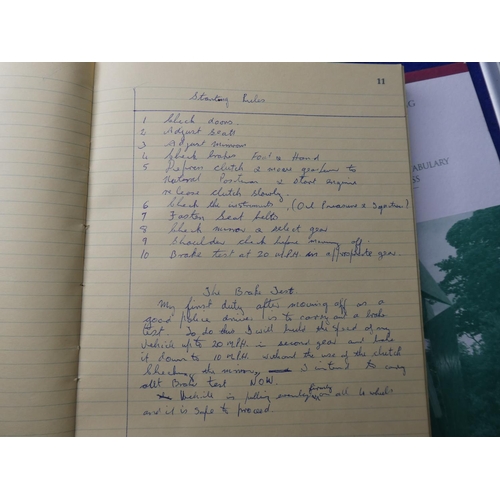 11
Starting Rules
1 Check doors.
2 Adjust Seat
3 Adjust mirrors
4 Check brakes Foot & Hand
5 Depress clutch & move gearlever to
Netural Position & start engine
release clutch slowly.
6 Check the instruments. (Oil Pressure & Ignition)
7 Fasten Seat belts
8 Check mirror & select gear
9 Shoulder check before moving off.
10 Brake test at 20 MPH in appropriate gear.
The Brake Test.
My first duty after moving off as a
good police driver is to carry out a brake
test. To do this I will build the speed of my
vehicle up to 20 MPH in second gear and brake
it down to 10 MPH without the use of the clutch
Checking the mirrors I intend to carry
out Brake test NOW.
Vehicle is pulling evenly firmly on all 4 wheels
and it is safe to proceed.
G
ABULARY
SS